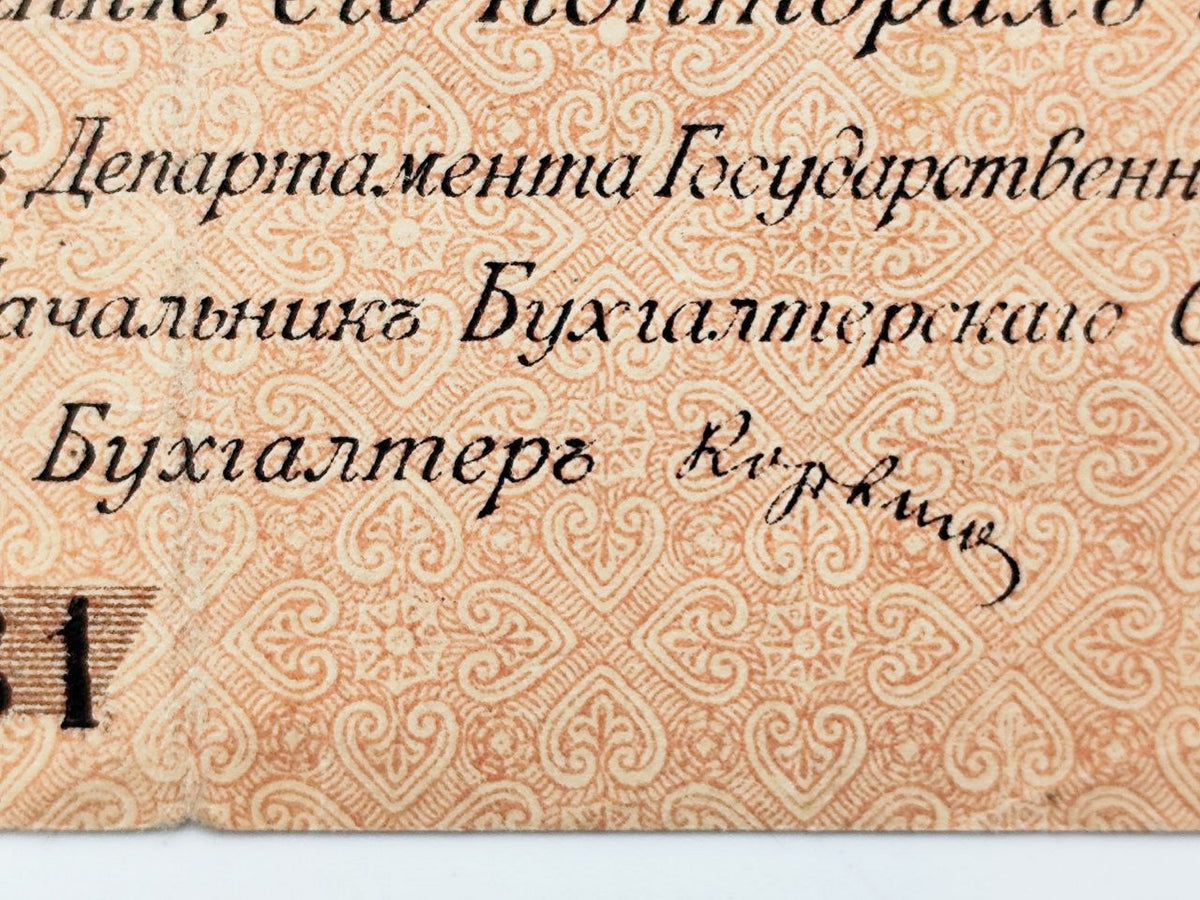 его конторахъ
Департамента Государственн
Начальникъ Бухгалтерскаго
Бухгалтеръ
31